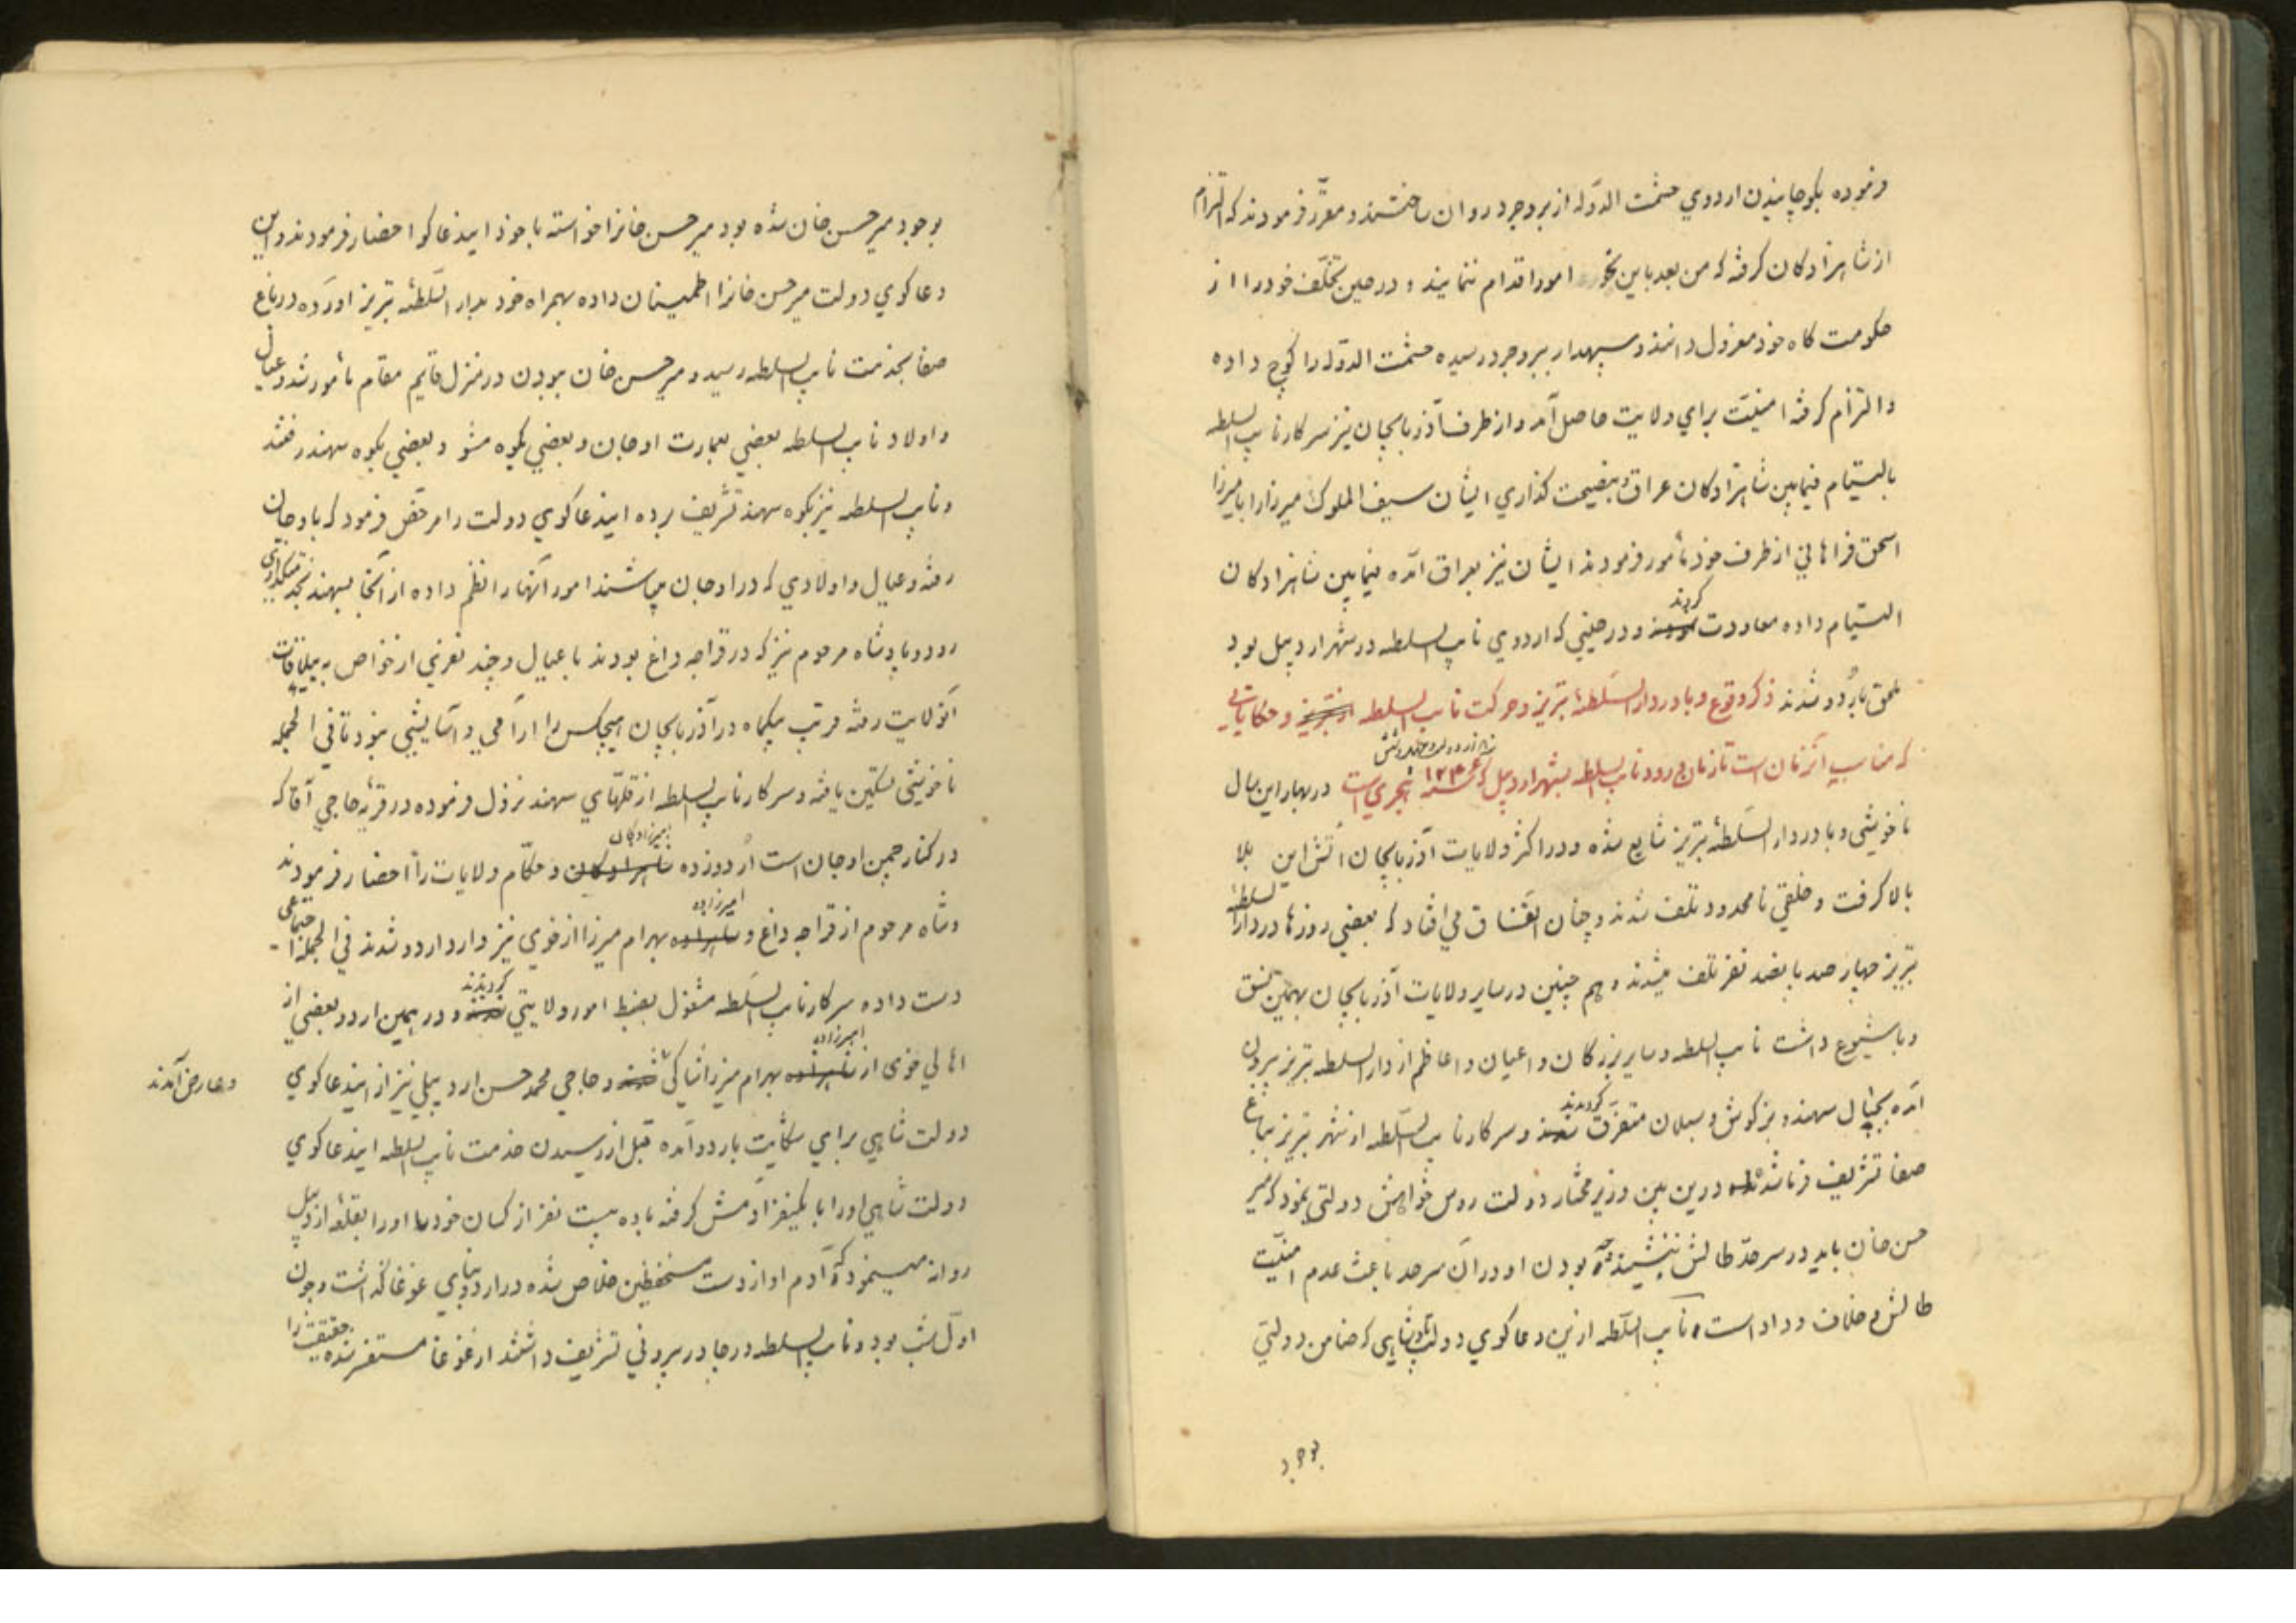 فرموده بکوچانیدن اردوی حشمت الدوله از بروجرد روان ساختند و مقرر فرمودند که التزام
از شاهزادکان کرفته که من بعد باین نحو امورا اقدام ننمایند و در حین تخلف خود را از
حکومت کاه خود معزول دانند و سپهدار ببروجرد رسیده حشمت الدوله را کوچ داده
و التزام کرفته امنیت برای ولایت حاصل آمد و از طرف آذربایجان نیز سرکار نایب السلطه
بالتیام فیمابین شاهزادکان عراق و نصیحت کذاری ایشان سیف الملوک میرزا را با میرزا
اسحق فراهانی از طرف خود مأمور فرمودند ایشان نیز بعراق آمده فیمابین شاهزادکان
التیام داده معاودت کردند و در حینی که اردوی نایب السلطه در شهر اردبیل بود
ملحق باردو شدند ذکر وقوع وبا در دار السلطنهٔ تبریز و حرکت نایب السلطه از تبریز و حکایاتی
که مناسب آنزمان است تا زمان ورود نایب السلطه بشهر اردبیل که سنه ۱۲۴۶ هجری است در بهار این سال
ناخوشی وبا در دار السلطنهٔ تبریز شایع شده و در اکثر ولایات آذربایجان آتش این بلا
بالا کرفت و خلقی نامحدود تلف شدند و چنان اتفاق می افتاد که بعضی روزها در دار السلطنهٔ
تبریز چهار صد پانصد نفر تلف میشدند و هم چنین در سایر ولایات آذربایجان بهمین نسق
وبا شیوع داشت نایب السلطه و سایر بزرکان و اعیان و اعاظم از دار السلطه تبریز بیرون
آمده بجبال سهند و بزکوش و سبلان متفرق کردیدند و سرکار نایب السلطه از شهر تبریز بباغ
صفا تشریف فرما شدند درین بین وزیر مختار دولت روس خواهش دولتی نمود که میر
حسن خان باید در سرحد طالش ننشیند چه بودن او در آن سرحد باعث عدم امنیت
طالش و خلاف وداد است نایب السلطه ازین دعاکوی دولت شاهی که ضامن دولتی
بوجود
بوجود میر حسن خان شده بود میر حسن خانرا خواسته با خود ایندعاکو احضار فرمودند و این
دعاکوی دولت میر حسن خانرا اطمینان داده بهمراه خود بدار السلطنه تبریز آورده در باغ
صفا بخدمت نایب السلطه رسید و میر حسن خان ببودن در منزل قایم مقام مأمور شد و عیال
و اولاد نایب السلطه بعضی بعمارت اوجان و بعضی بکوه مشو و بعضی بکوه سهند رفتند
و نایب السلطه نیز بکوه سهند تشریف برده ایندعاکوی دولت را مرخص فرمود که باوجان
رفته و عیال و اولادی که در اوجان میباشند امور آنها را نظم داده از آنجا بسهند
رود و پادشاه مرحوم نیز که در قراجه داغ بودند با عیال و چند نفری از خواص به ییلاقات
آنولایت رفته قریب یکماه در آذربایجان هیچکس را آرامی و آسایشی نبود تا فی الجمله
ناخوشی تسکین یافته و سرکار نایب السلطه از قلهای سهند نزول فرموده در قریهٔ حاجی آقا که
در کنار چمن اوجان است اردو زده امیرزادکان و حکام ولایات را احضار فرمودند
و شاه مرحوم از قراجه داغ و امیرزاده بهرام میرزا از خوی نیز وارد اردو شدند فی الجمله اجتماعی
دست داده سرکار نایب السلطه مشغول بضبط امور ولایتی کردیدند و در همین اردو بعضی از
اهالی خوی از امیرزاده بهرام میرزا شاکی و حاجی محمد حسن اردبیلی نیز از ایندعاکوی
و عارض آمدند
دولت شاهی برای شکایت باردو آمده قبل از رسیدن خدمت نایب السلطه ایندعاکوی
دولت شاهی او را با یکنفر آدمش کرفته با ده بیست نفر از کسان خود او را بقلعهٔ اردبیل
روانه مینمود که آدم او از دست مستحفظین خلاص شده در اردو بنای غوغا کذاشت و چون
اول شب بود و نایب السلطه در چادر بیرونی تشریف داشتند از غوغا مستفسر شده حقیقت را